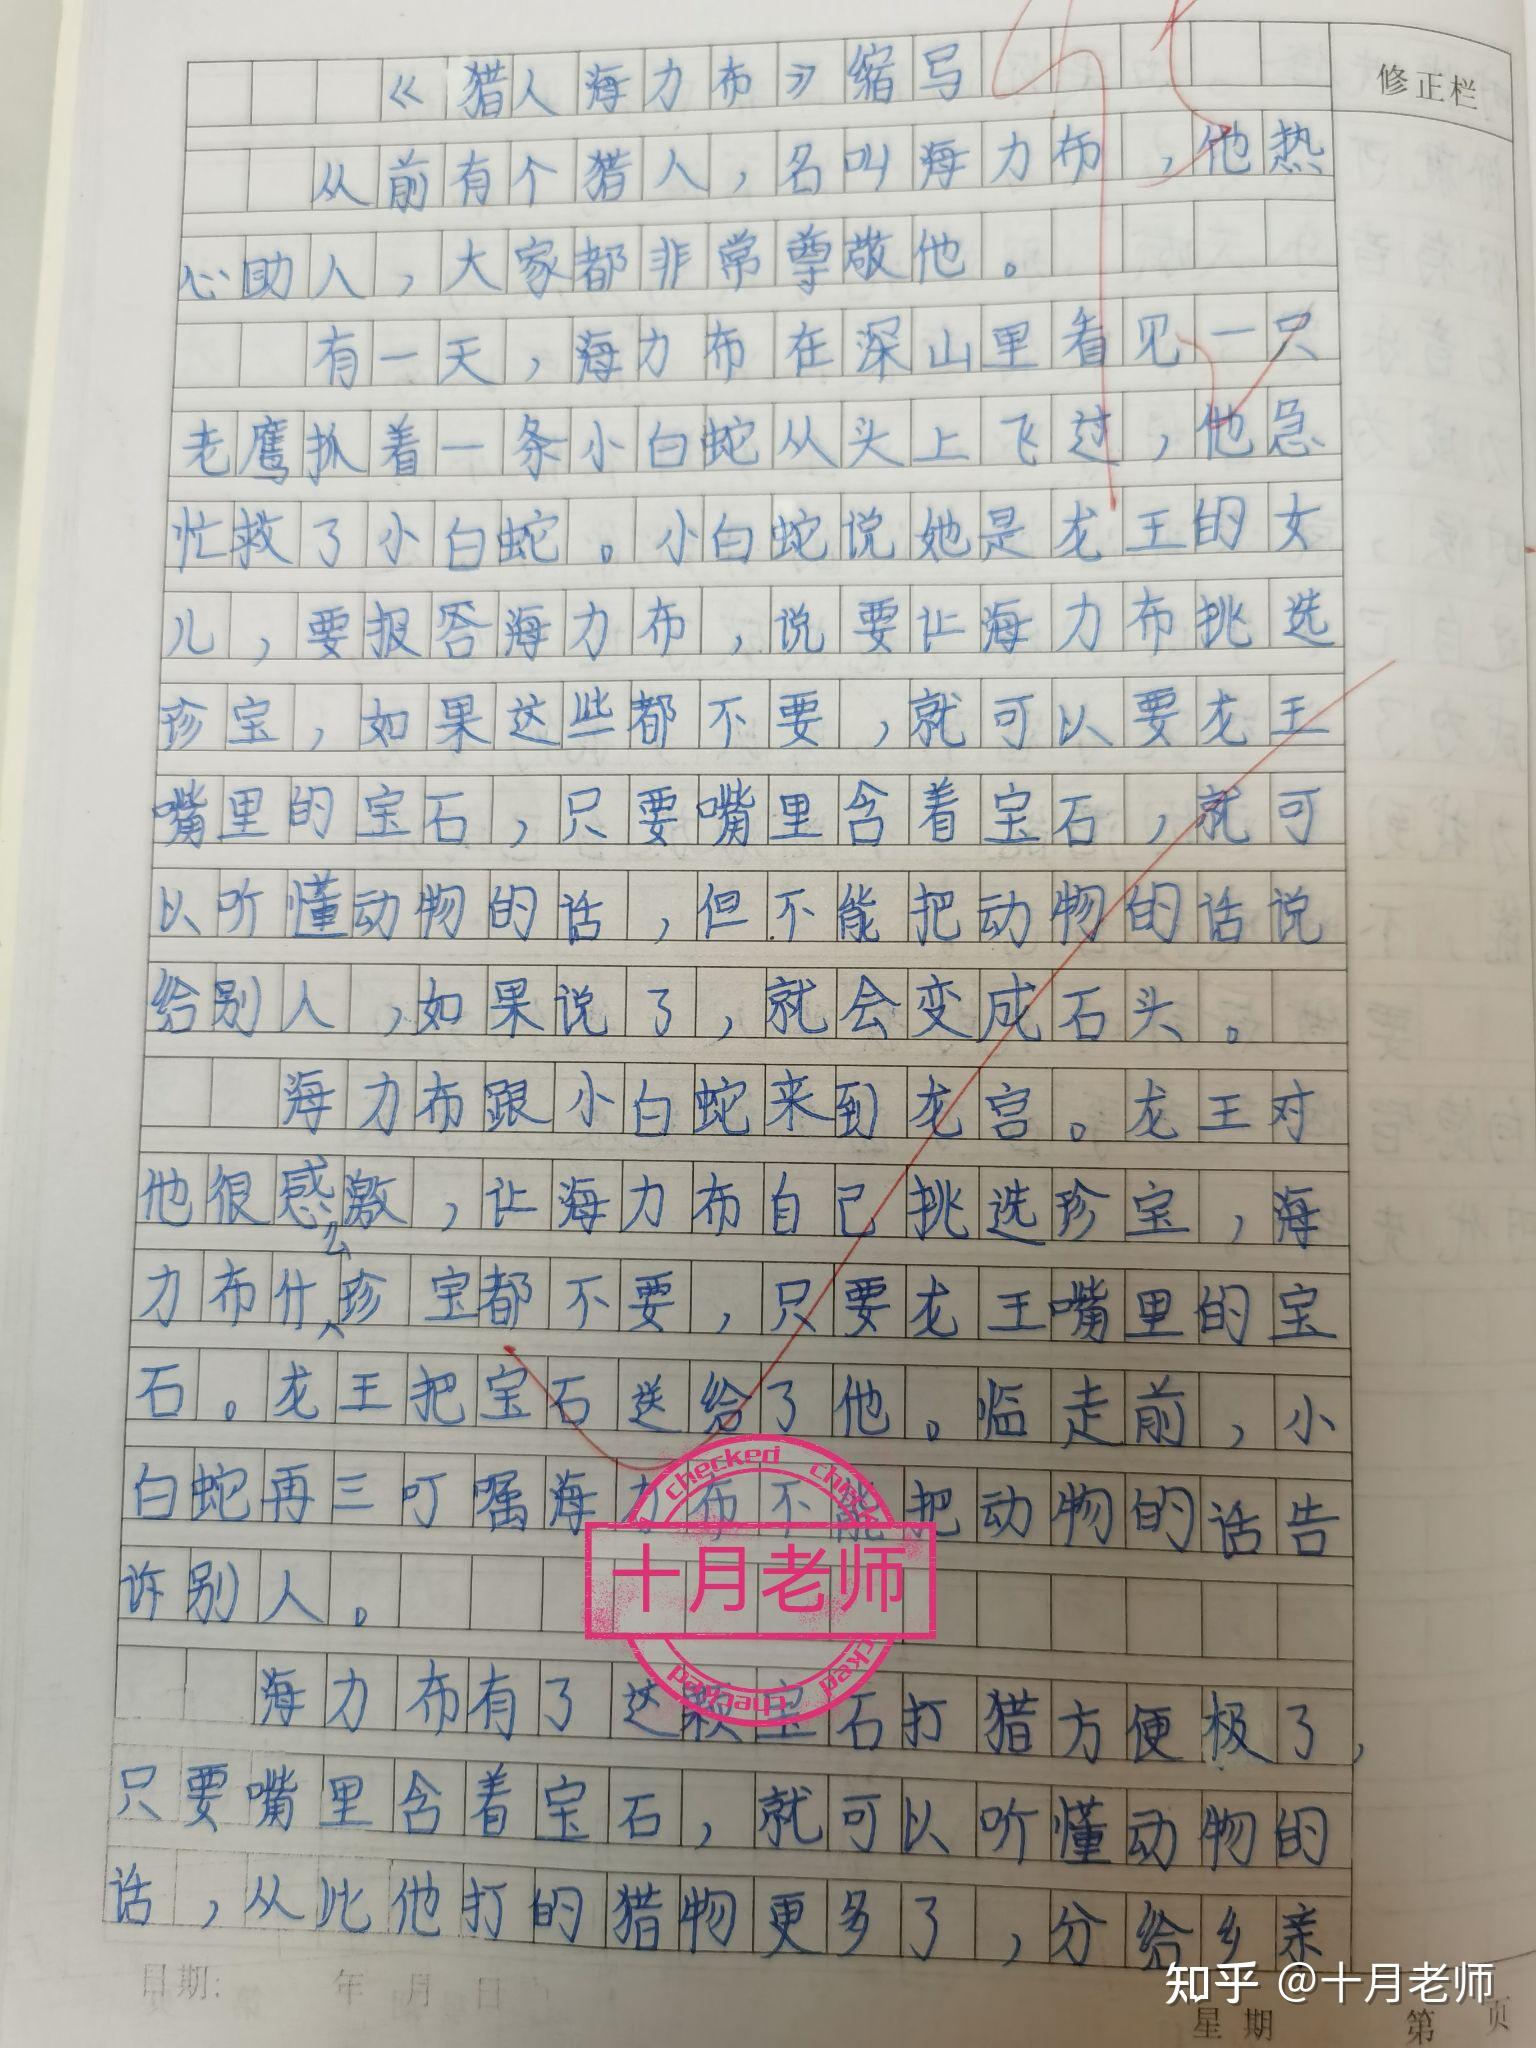 《猎人海力布》缩写
修正栏
从前有个猎人，名叫海力布，他热
心助人，大家都非常尊敬他。
有一天，海力布在深山里看见一只
老鹰抓着一条小白蛇从头上飞过，他急
忙救了小白蛇。小白蛇说她是龙王的女
儿，要报答海力布，说要让海力布挑选
珍宝，如果这些都不要，就可以要龙王
嘴里的宝石，只要嘴里含着宝石，就可
以听懂动物的话，但不能把动物的话说
给别人，如果说了，就会变成石头。
海力布跟小白蛇来到龙宫。龙王对
他很感激，让海力布自己挑选珍宝，海
力布什么珍宝都不要，只要龙王嘴里的宝
石。龙王把宝石送给了他。临走前，小
白蛇再三叮嘱海力布不能把动物的话告
诉别人。
checked checked
十月老师
checked checked
海力布有了这颗宝石打猎方便极了，
只要嘴里含着宝石，就可以听懂动物的
话，从此他打的猎物更多了，分给乡亲
知乎 @十月老师
日期: 年 月 日
星期 第 页